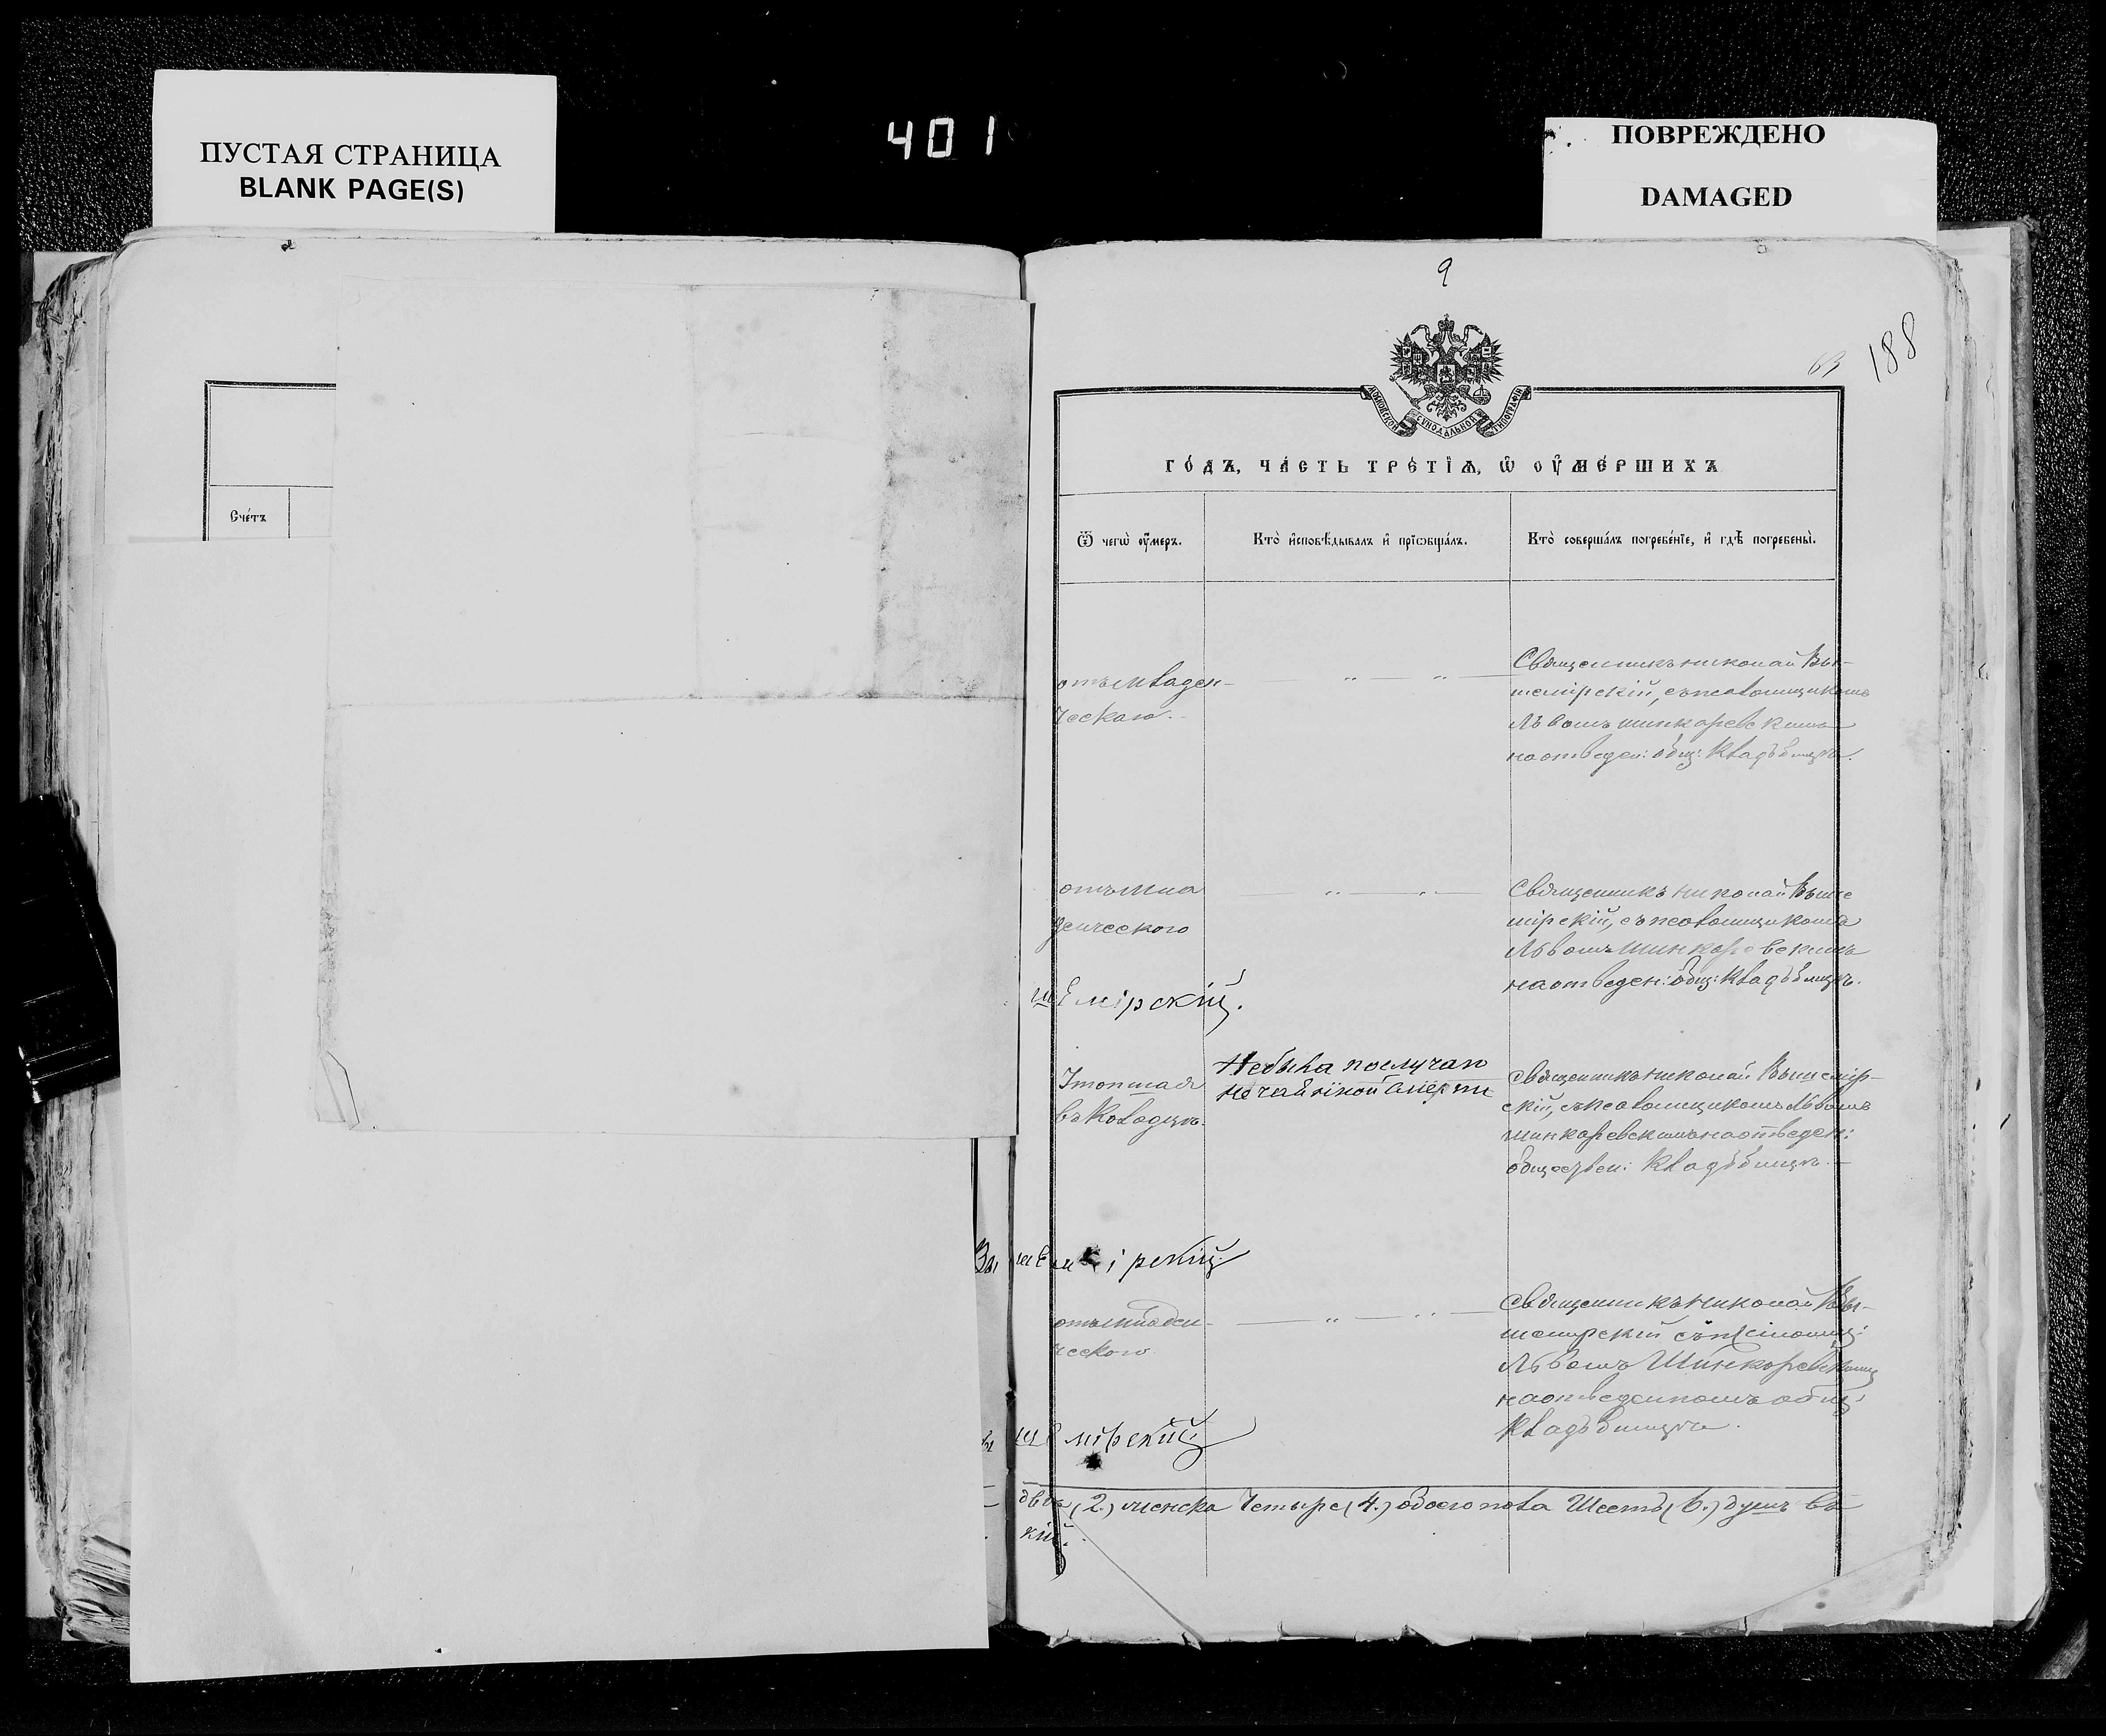 ПУСТАЯ СТРАНИЦА
BLANK PAGE(S)
401
ПОВРЕЖДЕНО
DAMAGED
9
188
МОСКОВСКОЙ СѴНОДАЛЬНОЙ ТИПОГРАФІИ
Счéтъ
ГÓДЪ, ЧÁСТЬ ТРÉТЇѦ, Ѡ ОУ҆МÉРШИХЪ
Ѿ чегѡ̀ оу҆́меръ.
Кто̀ и҆сповѣ́дывалъ и҆ прїѻбща́лъ.
Кто̀ соверша́лъ погребе́нїе, и҆ гдѣ̀ погребены̀.
отъ младен-
ческаго.
Священникъ Николай Вы-
шемірскій, съ псаломщикомъ
Львомъ Шинкаревскимъ
на отведен: общ: кладбищѣ.
отъ мла
денческого
Священникъ Николай Выше
мірскій, съ псаломщикомъ
Львомъ Шинкаревскимъ
на отведен: общ: кладбищѣ.
шемірскій.
Утопшая
въ колодцѣ.
Небыла послучаю
нечаянной смерти
Священникъ Николай Вышемір-
скій, съ псаломщикомъ Львомъ
Шинкаревскимъ на отведен:
обществен: кладбищѣ.
Вышемірскій
отъ младен-
ческого
Священникъ Николай Вы-
шемирскій съ псаломщ:
Львомъ Шинкаревскимъ
на отведенномъ общ:
кладбищѣ.
ышемірскій
два (2.) женска Четыре (4.) обоего пола Шесть (6.) душъ въ
кій.